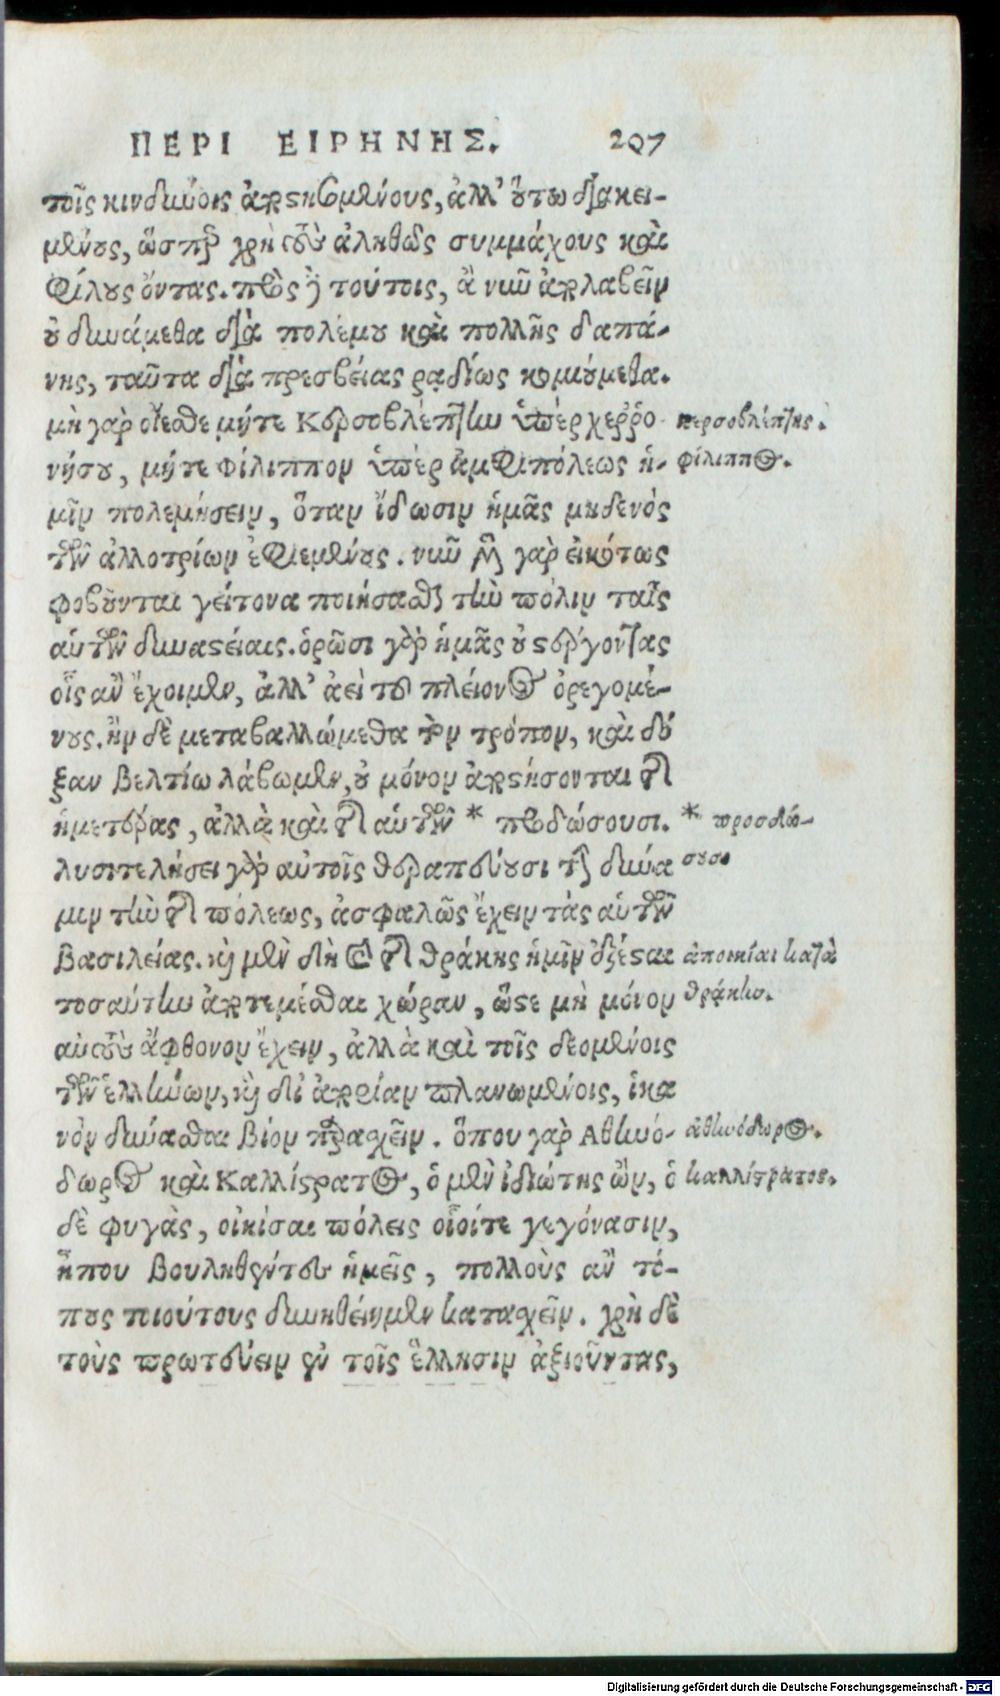 ΠΕΡΙ ΕΙΡΗΝΗΣ. 207
τοῖς κινδύνοις ἀποστησομένους, ἀλλ' οὕτω διακει-
μένους, ὥσπερ χρὴ τοὺς ἀληθῶς συμμάχους καὶ
φίλους ὄντας. πρὸς δὲ τούτοις, ἃ νῦν ἀπολαβεῖν
οὐ δυνάμεθα διὰ πολέμου καὶ πολλῆς δαπά-
νης, ταῦτα διὰ πρεσβείας ῥᾳδίως κομιούμεθα.
μὴ γὰρ οἴεσθε μήτε Κερσοβλέπτην ὑπὲρ χερρο-
νήσου, μήτε Φίλιππον ὑπὲρ ἀμφιπόλεως ἡ-
μῖν πολεμήσειν, ὅταν ἴδωσιν ἡμᾶς μηδενὸς
τῶν ἀλλοτρίων ἐφιεμένους. νῦν μὲν γὰρ εἰκότως
φοβοῦνται γείτονα ποιήσασθαι τὴν πόλιν ταῖς
αὑτῶν δυναστείαις. ὁρῶσι γὰρ ἡμᾶς οὐ στέργοντας
οἷς ἂν ἔχοιμεν, ἀλλ' ἀεὶ τοῦ πλείονος ὀρεγομέ-
νους. ἢν δὲ μεταβαλλώμεθα τὸν τρόπον, καὶ δό
ξαν βελτίω λάβωμεν, οὐ μόνον ἀποστήσονται τῆς
ἡμετέρας, ἀλλὰ καὶ τῆς αὑτῶν * προδώσουσι.
λυσιτελήσει γὰρ αὐτοῖς θεραπεύουσι τὴν δύνα
μιν τὴν τῆς πόλεως, ἀσφαλῶς ἔχειν τὰς αὑτῶν
βασιλείας. καὶ μὲν δὴ καὶ τῆς θρᾴκης ἡμῖν ἐξέσται
τοσαύτην ἀποτεμέσθαι χώραν, ὥστε μὴ μόνον
αὐτοὺς ἄφθονον ἔχειν, ἀλλὰ καὶ τοῖς δεομένοις
τῶν ἑλλήνων, καὶ δι' ἀπορίαν πλανωμένοις, ἱκα
νὸν δύνασθαι βίον παρασχεῖν. ὅπου γὰρ Αθηνό-
δωρος καὶ Καλλίστρατος, ὁ μὲν ἰδιώτης ὢν, ὁ
δὲ φυγὰς, οἰκίσαι πόλεις οἷοίτε γεγόνασιν,
ἦπου βουληθέντες ἡμεῖς, πολλοὺς ἂν τό-
πους τοιούτους δυνηθείημεν κατασχεῖν. χρὴ δὲ
τοὺς πρωτεύειν ἐν τοῖς ἕλλησιν ἀξιοῦντας,
κερσοβλέπτης.
φίλιππος.
* προσδώ-
σουσι
ἀποικίαι κατὰ
θρᾴκην.
ἀθηνόδωρος.
καλλίστρατος.
Digitalisierung gefördert durch die Deutsche Forschungsgemeinschaft - DFG